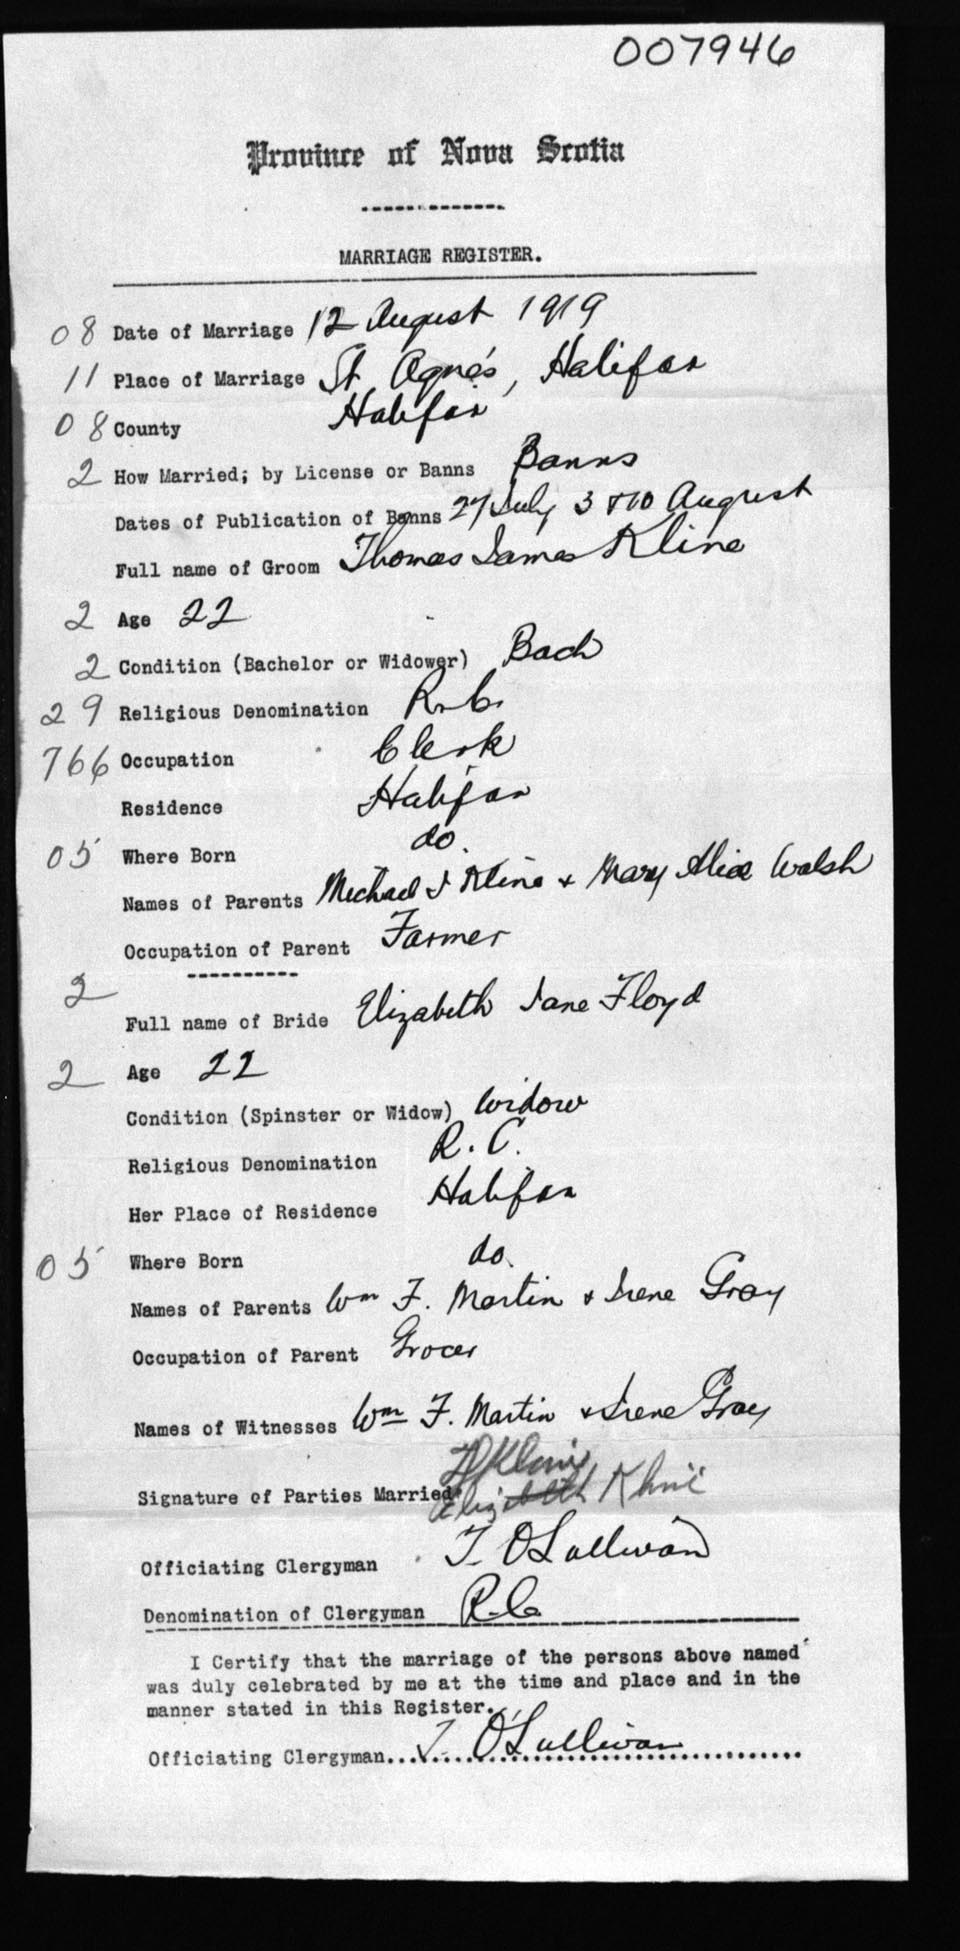 007946
Province of Nova Scotia
MARRIAGE REGISTER.
08 Date of Marriage 12 August 1919
11 Place of Marriage St. Agnes, Halifax
08 County Halifax
2 How Married; by License or Banns Banns
Dates of Publication of Banns 27 July 3 & 10 August
Full name of Groom Thomas James Kline
2 Age 22
2 Condition (Bachelor or Widower) Bach
29 Religious Denomination R.C.
766 Occupation Clerk
Residence Halifax
05 Where Born do.
Names of Parents Michael J Kline + Mary Alice Walsh
Occupation of Parent Farmer
2
Full name of Bride Elizabeth Jane Floyd
2 Age 22
Condition (Spinster or Widow) Widow
Religious Denomination R.C.
Her Place of Residence Halifax
05 Where Born do.
Names of Parents Wm F. Martin & Irene Gray
Occupation of Parent Grocer
Names of Witnesses Wm F. Martin & Irene Gray
Kline
Signature of Parties Married Elizabeth Kline
Officiating Clergyman T. O'Sullivan
Denomination of Clergyman R.C.
I Certify that the marriage of the persons above named
was duly celebrated by me at the time and place and in the
manner stated in this Register.
Officiating Clergyman... T. O'Sullivan